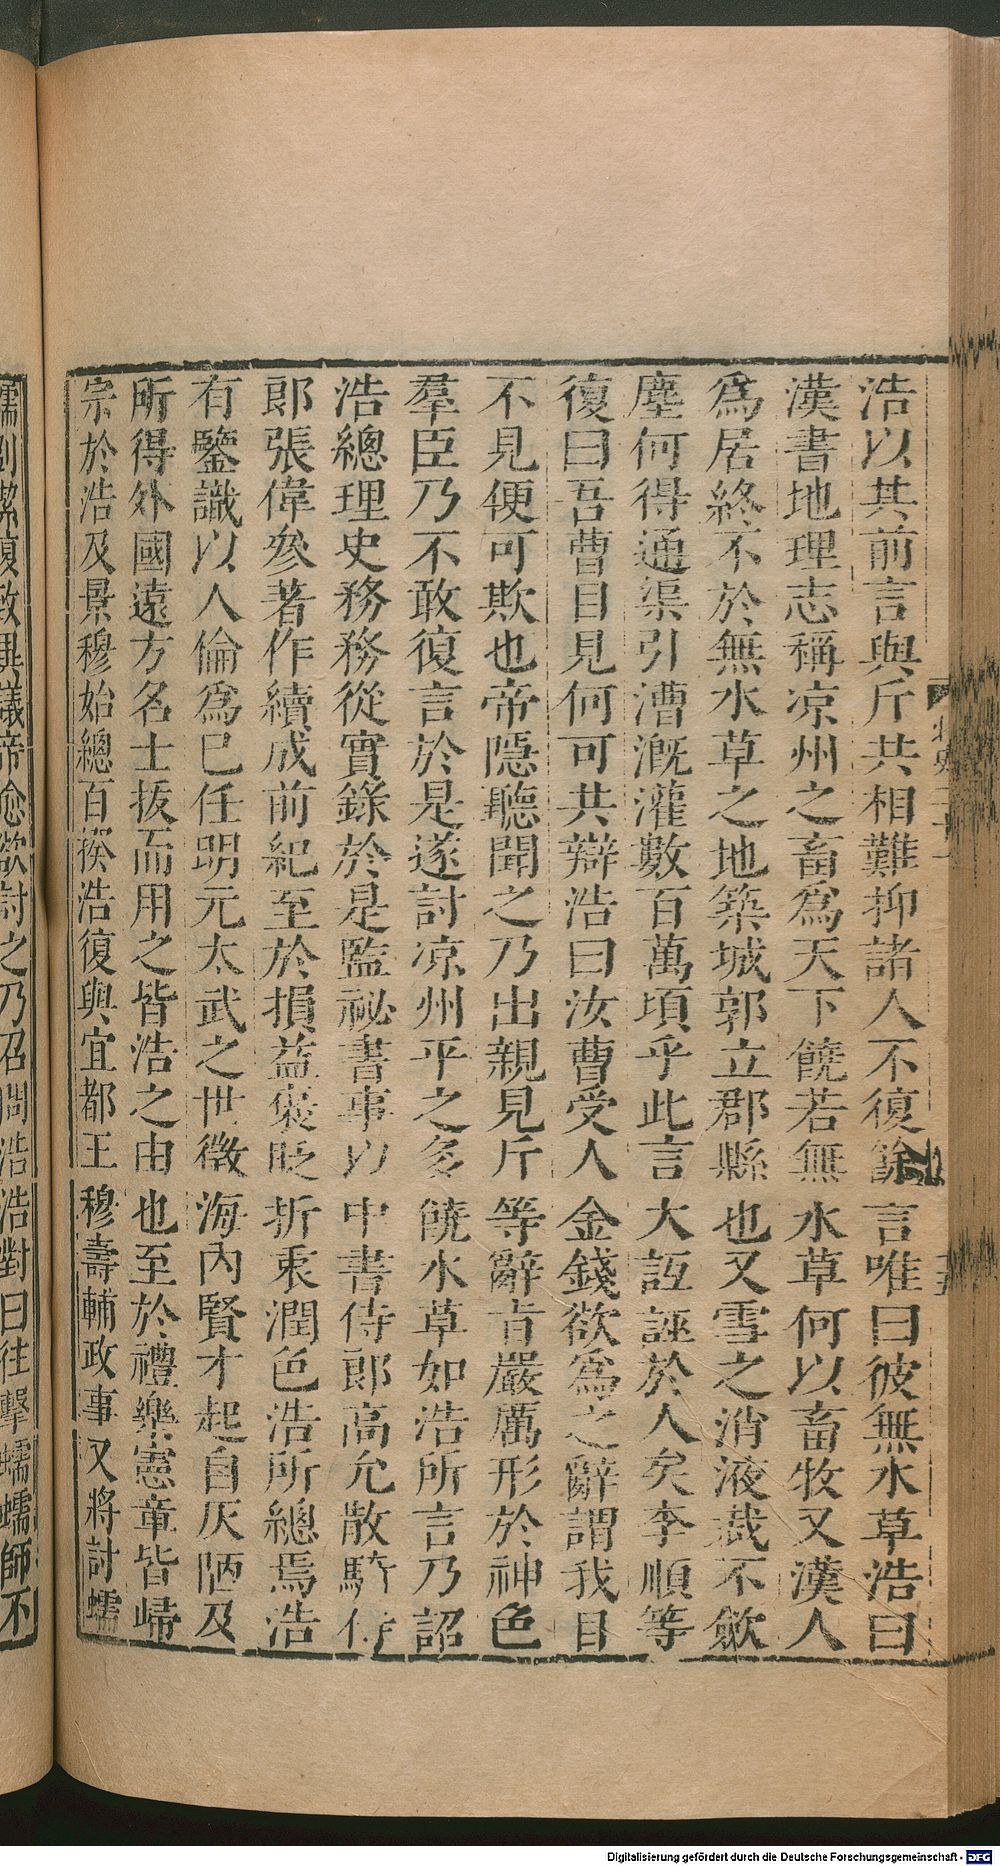 浩以其前言與斤共相難抑諸人不復餘言唯曰彼無水草浩曰
漢書地理志稱凉州之畜爲天下饒若無水草何以畜牧又漢人
爲居終不於無水草之地築城郭立郡縣也又雪之消液裁不斂
塵何得通渠引漕溉灌數百萬頃乎此言大詆誣於人矣李順等
復曰吾曹目見何可共辯浩曰汝曹受人金錢欲爲之辭謂我目
不見便可欺也帝隱聽聞之乃出親見斤等辭旨嚴厲形於神色
羣臣乃不敢復言於是遂討凉州平之多饒水草如浩所言乃詔
浩總理史務務從實錄於是監祕書事以中書侍郎高允散騎侍
郎張偉叅著作續成前紀至於損益襃貶折衷潤色浩所總焉浩
有鑒識以人倫爲已任明元太武之世徵海內賢才起自仄陋及
所得外國遠方名士拔而用之皆浩之由也至於禮樂憲章皆歸
宗於浩及景穆始總百揆浩復與宜都王穆壽輔政事又將討蠕
蠕劉潔復致異議帝愈欲討之乃召問浩浩對曰往擊蠕蠕師不
Digitalisierung gefördert durch die Deutsche Forschungsgemeinschaft - DFG